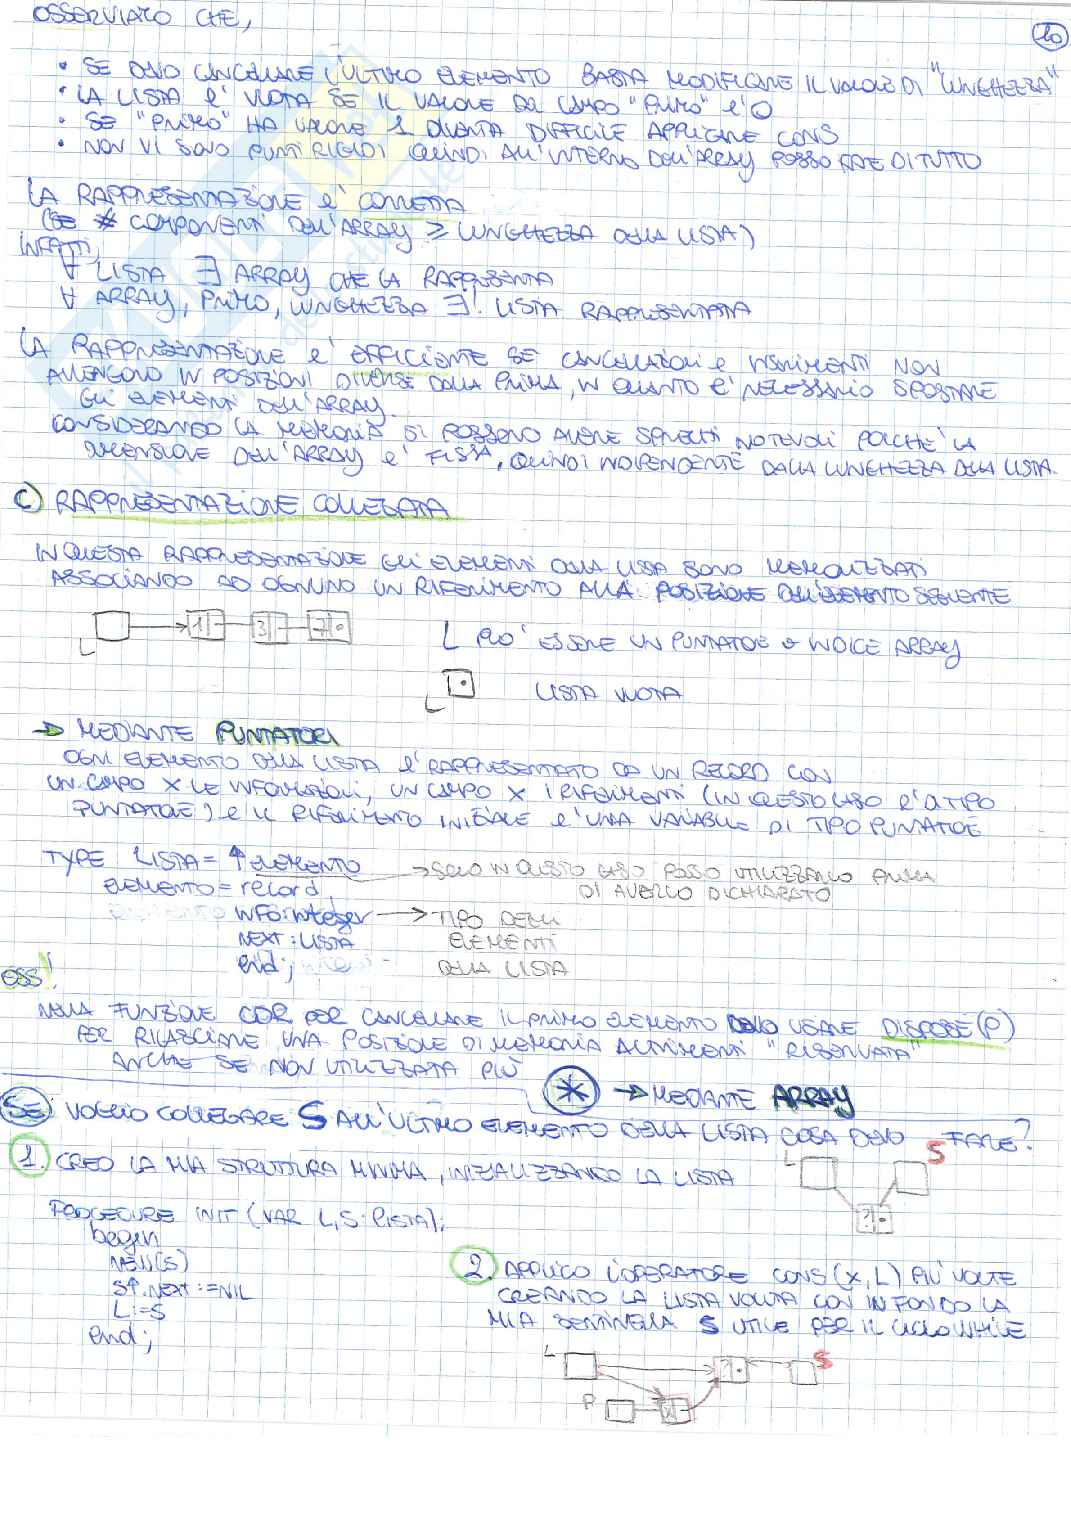 OSSERVIAMO CHE,
10
• SE DEVO CANCELLARE L'ULTIMO ELEMENTO BASTA MODIFICARE IL VALORE DI "LUNGHEZZA"
• LA LISTA E' VUOTA SE IL VALORE DEL CAMPO "PRIMO" E' 0
• SE "PRIMO" HA VALORE 1 DIVENTA DIFFICILE APPLICARE CONS
• NON VI SONO PUNTI RIGIDI QUINDI ALL'INTERNO DELL'ARRAY POSSO FARE DI TUTTO
LA RAPPRESENTAZIONE E' CORRETTA
(SE # COMPONENTI DELL'ARRAY ≥ LUNGHEZZA DELLA LISTA)
INFATTI
∀ LISTA ∃ ARRAY CHE LA RAPPRESENTA
∀ ARRAY, PRIMO, LUNGHEZZA ∃! LISTA RAPPRESENTATA
LA RAPPRESENTAZIONE E' EFFICIENTE SE CANCELLAZIONI E INSERIMENTI NON
AVVENGONO IN POSIZIONI DIVERSE DALLA PRIMA, IN QUANTO E' NECESSARIO SPOSTARE
GLI ELEMENTI DELL'ARRAY.
CONSIDERANDO LA MEMORIA SI POSSONO AVERE SPRECHI NOTEVOLI POICHE' LA
DIMENSIONE DELL'ARRAY E' FISSA, QUINDI INDIPENDENTE DALLA LUNGHEZZA DELLA LISTA.
C) RAPPRESENTAZIONE COLLEGATA
IN QUESTA RAPPRESENTAZIONE GLI ELEMENTI DELLA LISTA SONO MEMORIZZATI
ASSOCIANDO AD OGNUNO UN RIFERIMENTO ALLA POSIZIONE DELL'ELEMENTO SEGUENTE
L 1 3 7
L PUO' ESSERE UN PUNTATORE O INDICE ARRAY
L LISTA VUOTA
→ MEDIANTE PUNTATORI
OGNI ELEMENTO DELLA LISTA E' RAPPRESENTATO DA UN RECORD CON
UN CAMPO X LE INFORMAZIONI, UN CAMPO X I RIFERIMENTI (IN QUESTO CASO E' DI TIPO
PUNTATORE) E IL RIFERIMENTO INIZIALE E' UNA VARIABILE DI TIPO PUNTATORE
TYPE LISTA = ↑ELEMENTO → SOLO IN QUESTO CASO POSSO UTILIZZARLO PRIMA
DI AVERLO DICHIARATO
ELEMENTO = record
INFO: integer → TIPO DEGLI
NEXT : LISTA ELEMENTI
end; DELLA LISTA
OSS!
NELLA FUNZIONE CDR PER CANCELLARE IL PRIMO ELEMENTO DEVO USARE DISPOSE(P)
PER RILASCIARE UNA POSIZIONE DI MEMORIA ALTRIMENTI "RISERVATA"
ANCHE SE NON UTILIZZATA PIÙ
* → MEDIANTE ARRAY
SE VOGLIO COLLEGARE S ALL'ULTIMO ELEMENTO DELLA LISTA COSA DEVO FARE?
1. CREO LA MIA STRUTTURA MINIMA, INIZIALIZZANDO LA LISTA
L S
?
PROCEDURE INIT (VAR L,S: LISTA);
begin
NEW(S)
S↑.NEXT:=NIL
L:=S
end;
2. APPLICO L'OPERATORE CONS(X,L) PIÙ VOLTE
CREANDO LA LISTA VOLUTA CON IN FONDO LA
MIA SENTINELLA S UTILE PER IL CICLO WHILE
L ? S
P X